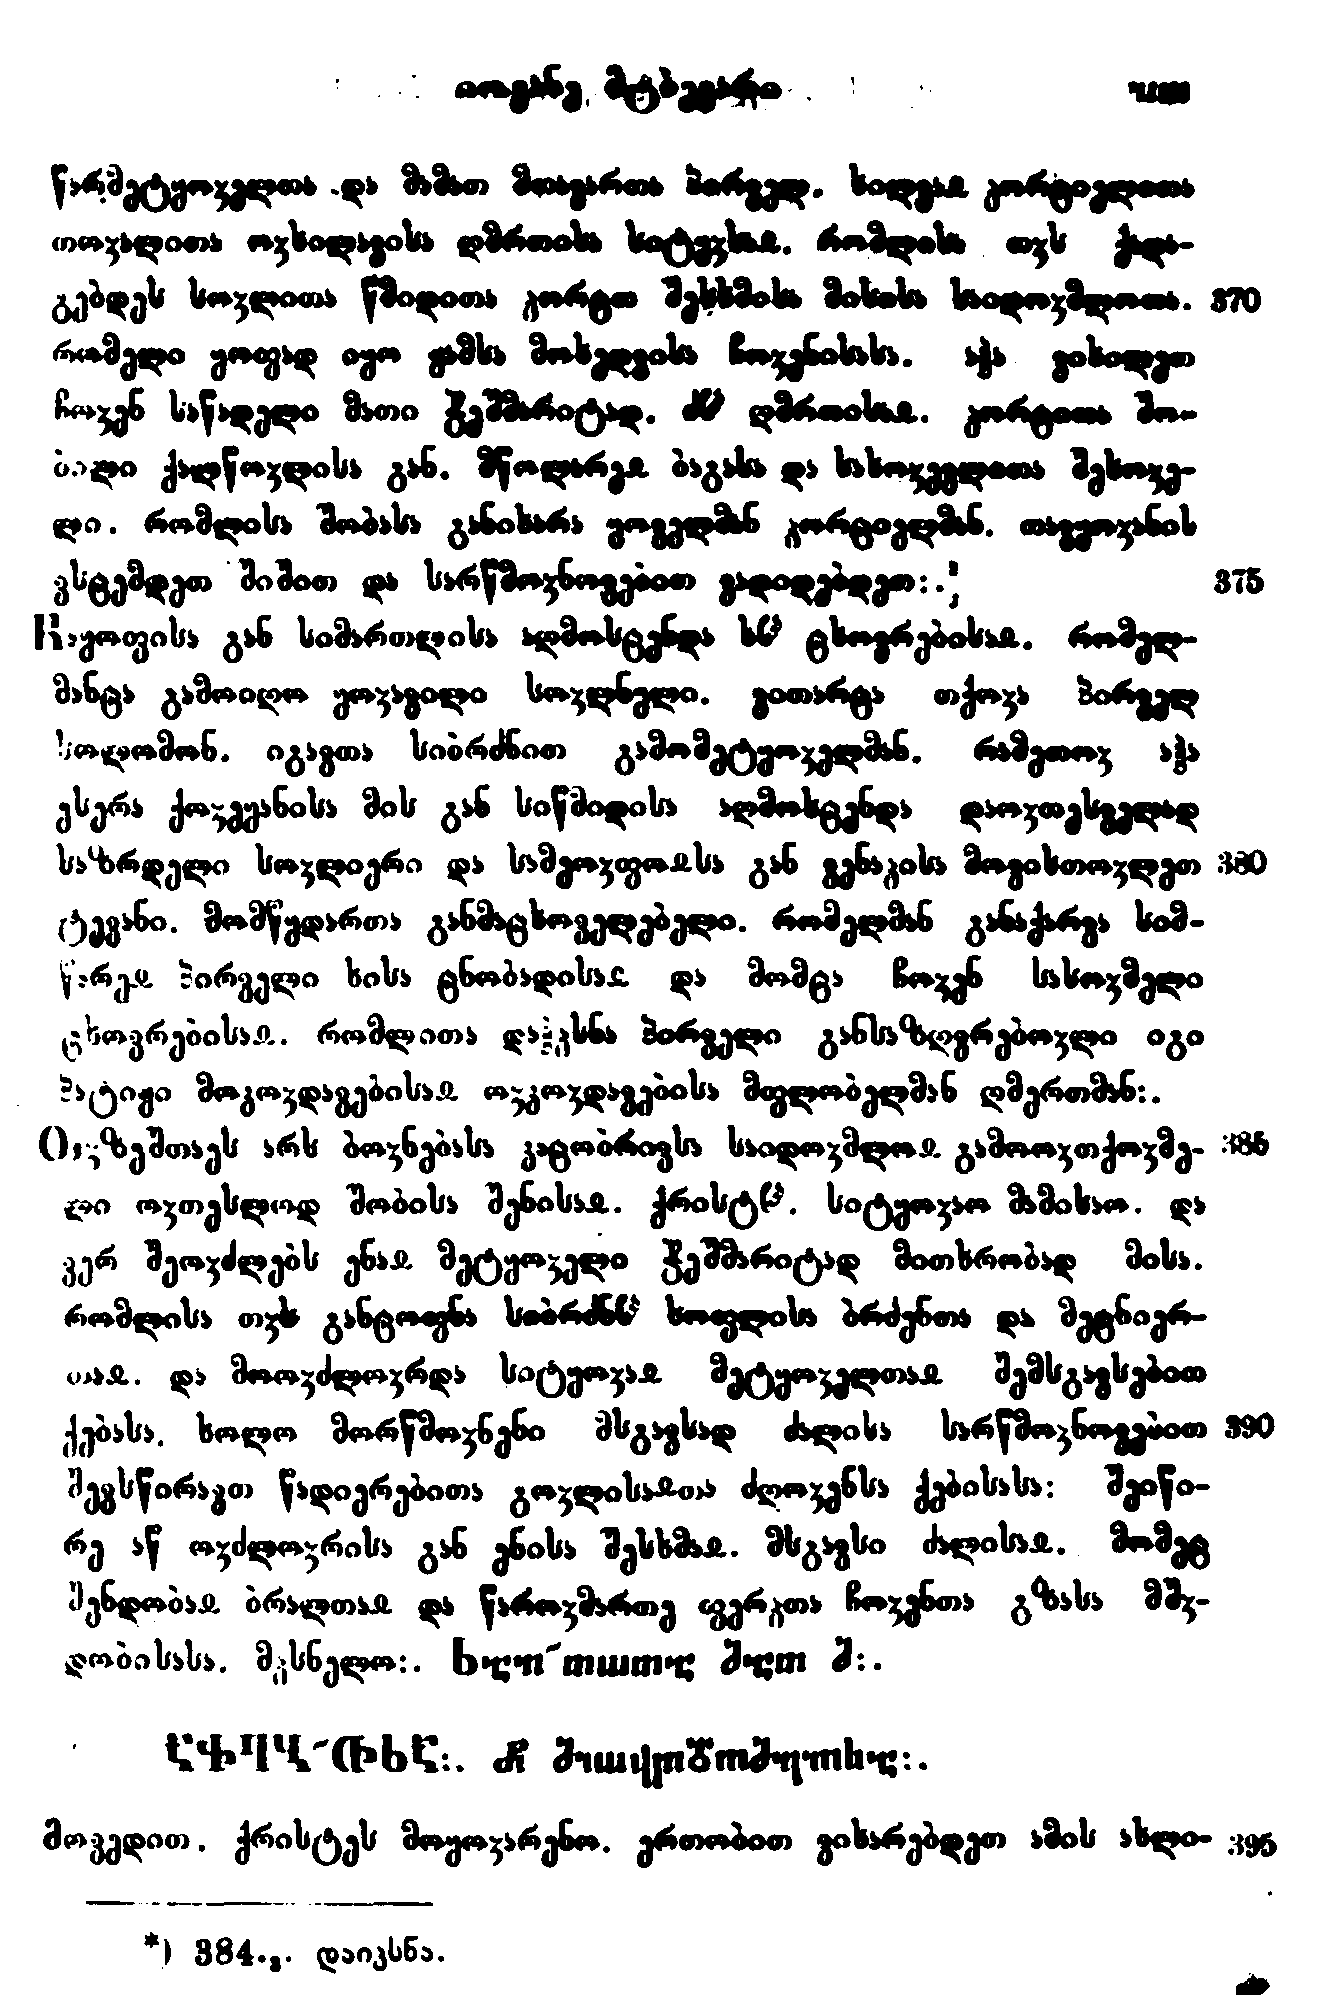 იოვანე მტბევარი
წარმეტყოჳელთა და მამათ მთავართა პირველ. ხილვაჲ ჴორციელითა
თოჳალითა ოჳხილავისა ღმრთისა სიტყჳსაჲ. რომლისა თჳს ქადა-
გებდეს სოჳლითა წმიდითა ჴორცთ შესხმისა მისისა საიდოჳმლოთა. 370
რომელი ყოფად იყო ჟამსა მოხედვისა ჩოჳენისასა. აჰა ვიხილეთ
ჩოჳენ საწადელი მათი ჭეშმარიტად. ღმრთისაჲ. ჴორცითა შო-
ბილი ქალწოჳლისა გან. მწოლარეჲ ბაგასა და სახოჳეველითა შეხოჳე-
ლი. რომლისა შობასა განიხარა ყოველმან ჴორციელმან. თავყოჳანის
ვსტემდეთ შიშით და სარწმოჳნოვებით ვადიდებდეთ:. 375
ნაყოფისა გან სიმართლისა აღმოსცენდა ხჱ ცხოვრებისაჲ. რომელ-
მანცა გამოიღო ყოჳავილი სოჳლნელი. ვითარცა თქოჳა პირველ
სოლომონ. იგავთა სიბრძნით გამომეტყოჳელმან. რამეთოჳ აჰა
ესერა ქოჳეყანისა მის გან სიწმიდისა აღმოსცენდა დაოჳთესველად
საზრდელი სოჳლიერი და სამეოჳფოჲსა გან ვენაჴისა მოვისთოჳლეთ 380
ტევანი. მომწყდართა განმაცხოველებელი. რომელმან განაქარვა სიმ-
წარეჲ პირველი ხისა ცნობადისაჲ და მომცა ჩოჳენ სასოჳმელი
ცხოვრებისაჲ. რომლითა დაჰჴსნა პირველი განსაზღვრებოჳლი იგი
პატიჟი მოკოჳდავებისაჲ ოჳკოჳდავებისა მფლობელმან ღმერთმან:.
ოჳზეშთაეს არს ბოჳნებასა კაცობრივსა საიდოჳმლოჲ გამოოჳთქოჳმე- 385
ლი ოჳთესლოდ შობისა შენისაჲ. ქრისტჱ. სიტყოჳაო მამისაო. და
ვერ შეოჳძლებს ენაჲ მეტყოჳელი ჭეშმარიტად მითხრობად მისა.
რომლისა თჳს განცოფნა სიბრძნჱ სოფლისა ბრძენთა და მეცნიერ-
თაჲ. და მოოჳძლოჳრდა სიტყოჳაჲ მეტყოჳელთაჲ შემსგავსებით
ქებასა. ხოლო მორწმოჳნენი მსგავსად ძალისა სარწმოჳნოვებით 390
შევსწირავთ წადიერებითა გოჳლისაჲთა ძღოჳენსა ქებისასა: შეიწი-
რე აწ ოჳძლოჳრისა გან ენისა შესხმაჲ. მსგავსი ძალისაჲ. მომეც
შენდობაჲ ბრალთაჲ და წაროჳმართე ფერჴთა ჩოჳენთა გზასა მშჳ-
დობისასა. მჴსნელო:.
მოვედით. ქრისტეს მოყოჳარენო. ერთობით ვიხარებდეთ ამის ახლი- 395
*) 384.ვ. დაიჴსნა.